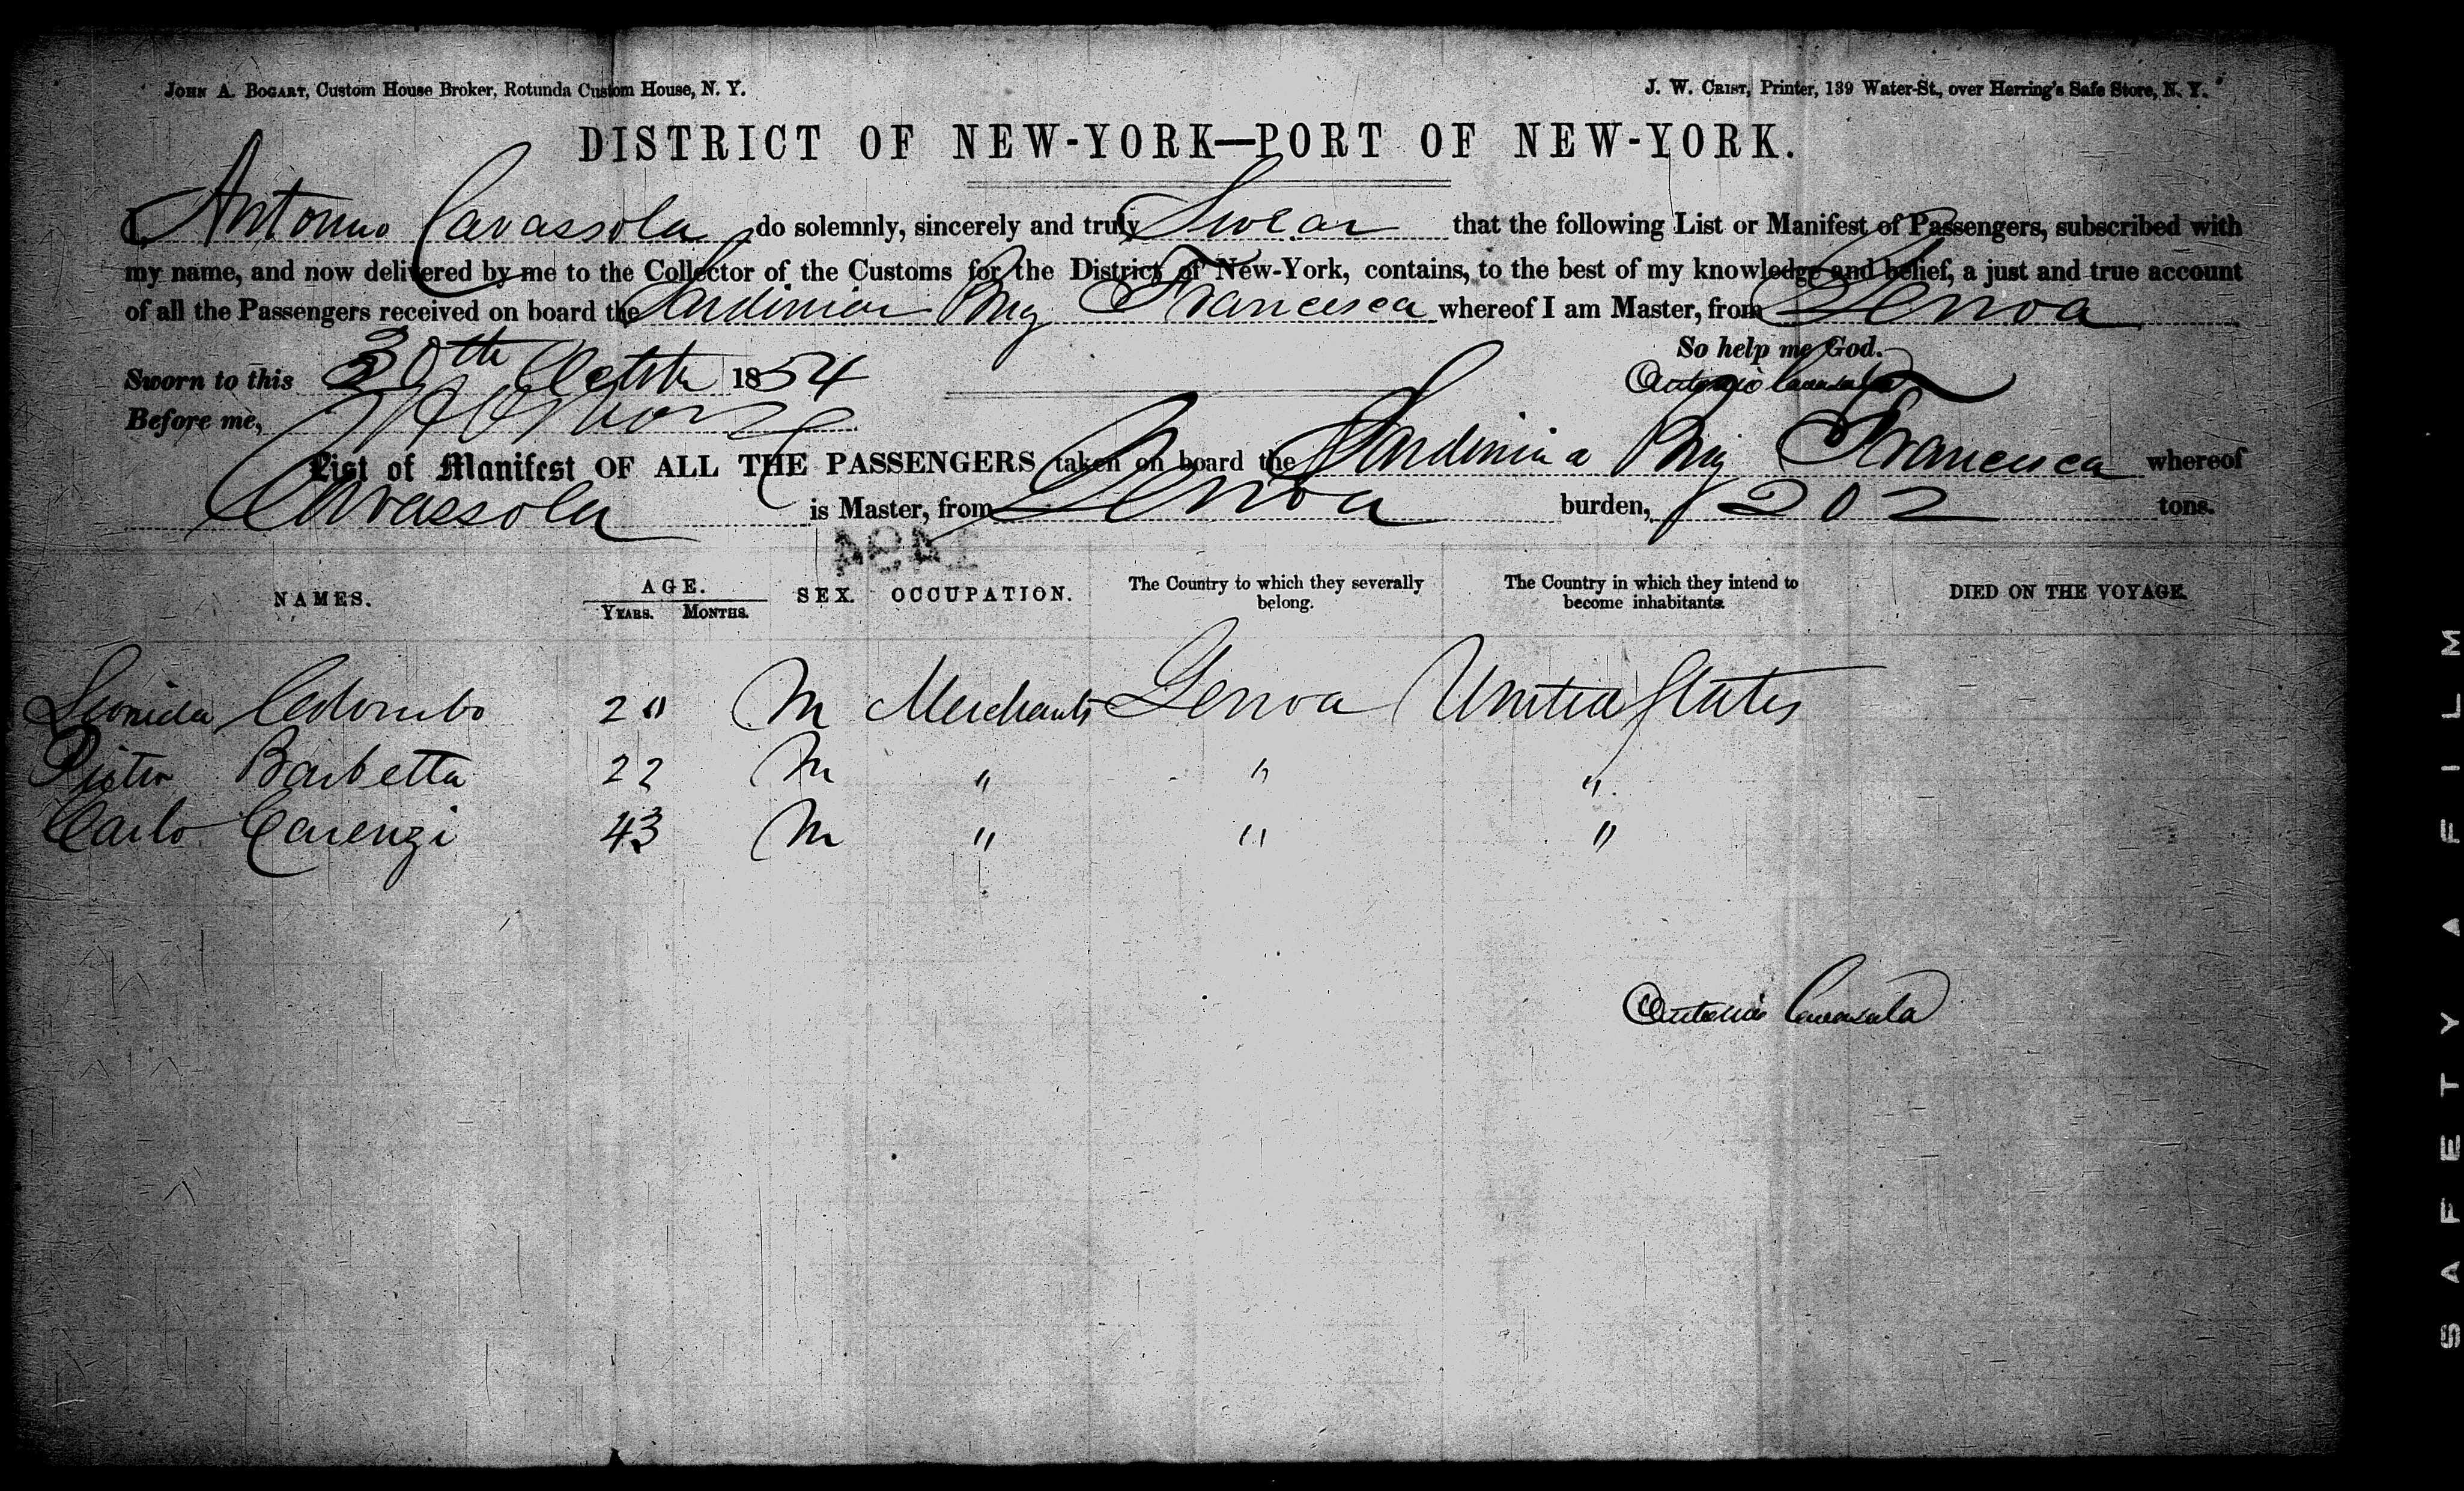 JOHN A. BOGART, Custom House Broker, Rotunda Custom House, N. Y.
J. W. CRIST, Printer, 139 Water-St., over Herring's Safe Store, N. Y.
DISTRICT OF NEW-YORK—PORT OF NEW-YORK.
I, Antonio Cavassola do solemnly, sincerely and truly Swear that the following List or Manifest of Passengers, subscribed with
my name, and now delivered by me to the Collector of the Customs for the District of New-York, contains, to the best of my knowledge and belief, a just and true account
of all the Passengers received on board the Sardinian Brig Francesca whereof I am Master, from Genoa
So help me God.
Sworn to this 30th 1854
Antonio Cavassola
Before me,
List of Manifest OF ALL THE PASSENGERS taken on board the Sardinia Brig Francesca whereof
Cavassola is Master, from Genoa burden, 202 tons.
1494
NAMES. AGE. YEARS. MONTHS. SEX. OCCUPATION. The Country to which they severally belong. The Country in which they intend to become inhabitants. DIED ON THE VOYAGE.
Leonida Colombo 20 M Merchants Genoa United States
Barbetta 22 M " " "
Carlo Carenzi 43 M " " "
Antonio Cavassola
SAFETY A FILM